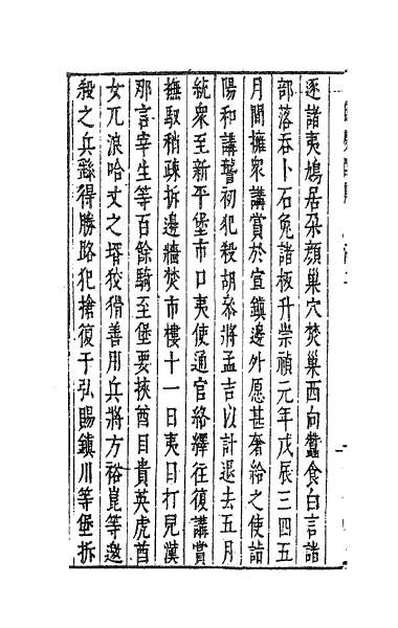 逐諸夷鳩居朵顏巢穴焚巢西向蠶食白言諸
部落吞卜石兔諸板升崇禎元年戊辰三四五
月間擁衆講賞於宣鎮邊外愿甚奢給之使詣
陽和講誓初犯殺胡參將孟吉以計退去五月
統衆至新平堡市口夷使通官絡繹往復講賞
撫馭稍疎拆邊牆焚市樓十一日夷目打兒漢
那言宰生等百餘騎至堡要挾酋目貴英虎酋
女兀浪哈丈之壻狡猾善用兵將方裕崑等邀
殺之兵繇得勝路犯搶復于弘賜鎮川等堡拆